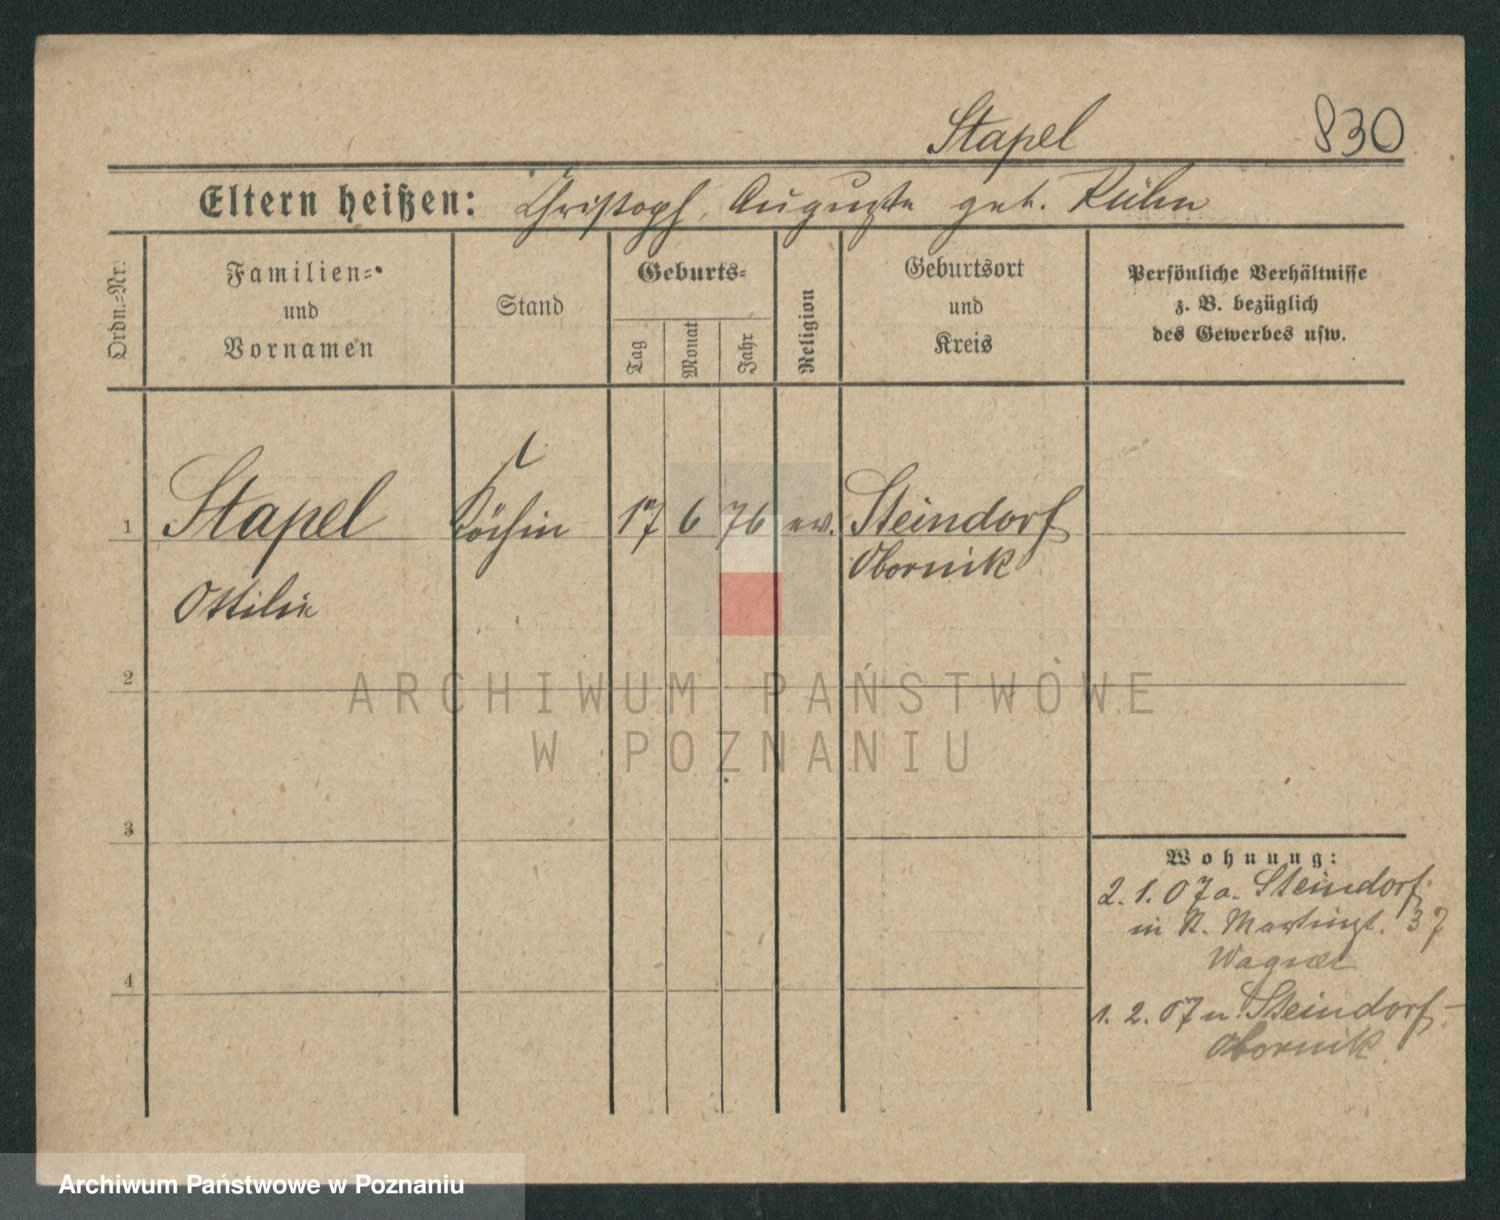 Stapel 830
Eltern heißen: Christoph, Auguste geb. Kühn
Ordn.=Nr.
Familien=
und
Vornamen
Stand
Geburts=
Tag
Monat
Jahr
Religion
Geburtsort
und
Kreis
Persönliche Verhältnisse
z. B. bezüglich
des Gewerbes usw.
1 Stapel Köchin 17 6 76 ev. Steindorf
Obornik
Ottilie
2
ARCHIWUM PAŃSTWOWE
W POZNANIU
3
Wohnung:
2. 1. 07 a. Steindorf
in St. Martinst. 37
Wagner
4
1. 2. 07 n. Steindorf-
Obornik
Archiwum Państwowe w Poznaniu